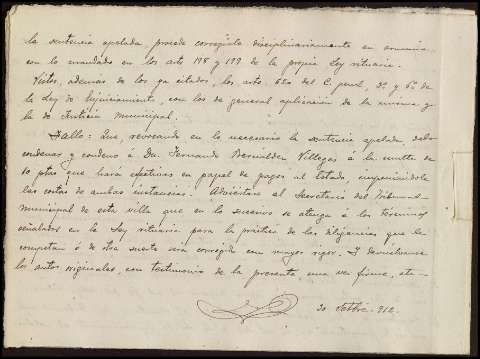 la sentencia apelada, procede corregirlo disciplinariamente en armonia
con lo mandado en los arts 198 y 199 de la propia Ley rituaria.
Vistos, además de los ya citados, los arts. 620 del C. penal, 3º y 5º de
la Ley de Enjuiciamiento, con los de general aplicacion de la misma y
la de Justicia Municipal.
Fallo: Que, revocando en lo necesario la sentencia apelada, debo
condenar y condeno á Dn. Fernando Bernáldez Villegas á la multa de
10 ptas que hará efectivas en papel de pagos al Estado imponiéndole
las costas de ambas instancias. Adviértase al Secretario del Tribunal
municipal de esta villa que en lo sucesivo se atenga á los términos
señalados en la Ley rituaria para la práctica de las diligencias que le
competan ó de otra suerte será corregido con mayor rigor. Y devuélvanse
los autos originales, con testimonio de la presente, una vez firme, etc—
30 Octbre. 912.